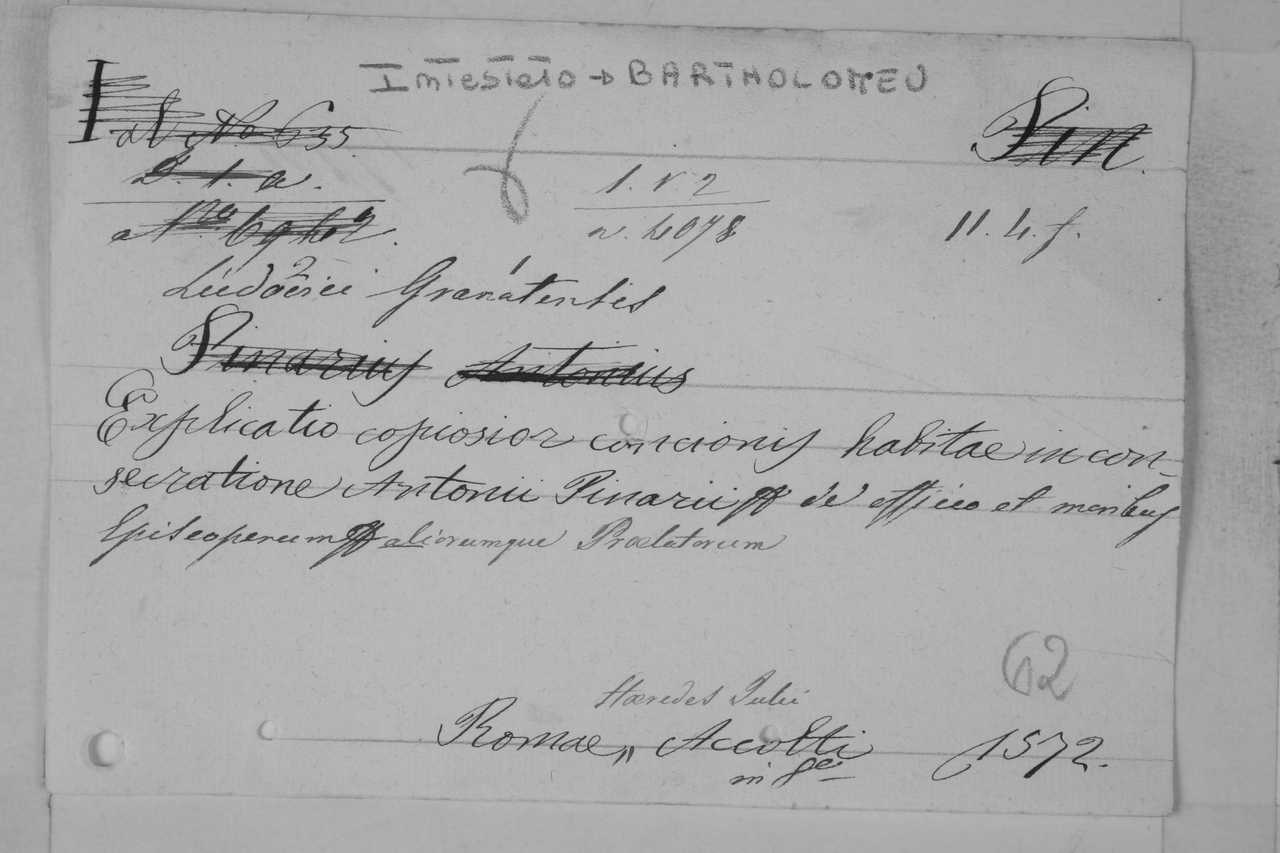 BARTHOLOMEU
al No 635 Pin
2. 1. a. 1. v 2
n. 4078 11. 4. f.
2 1
Ludovici Granatensis
Pinarius Antonius
Explicatio copiosior concionis habitae in con-
secratione Antonii Pinarii de officio et moribus
Episcoporum aliorumque Praelatorum
62
Haeredes Julii
Romae, Accolti 1572.
in 8º